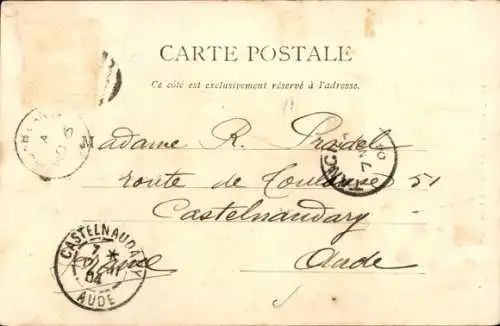 CARTE POSTALE
Ce côté est exclusivement réservé à l'adresse.
Madame R. Pradel
route de Toulouse 51
Castelnaudary
Aude
CASTELNAUDARY
7
04
AUDE